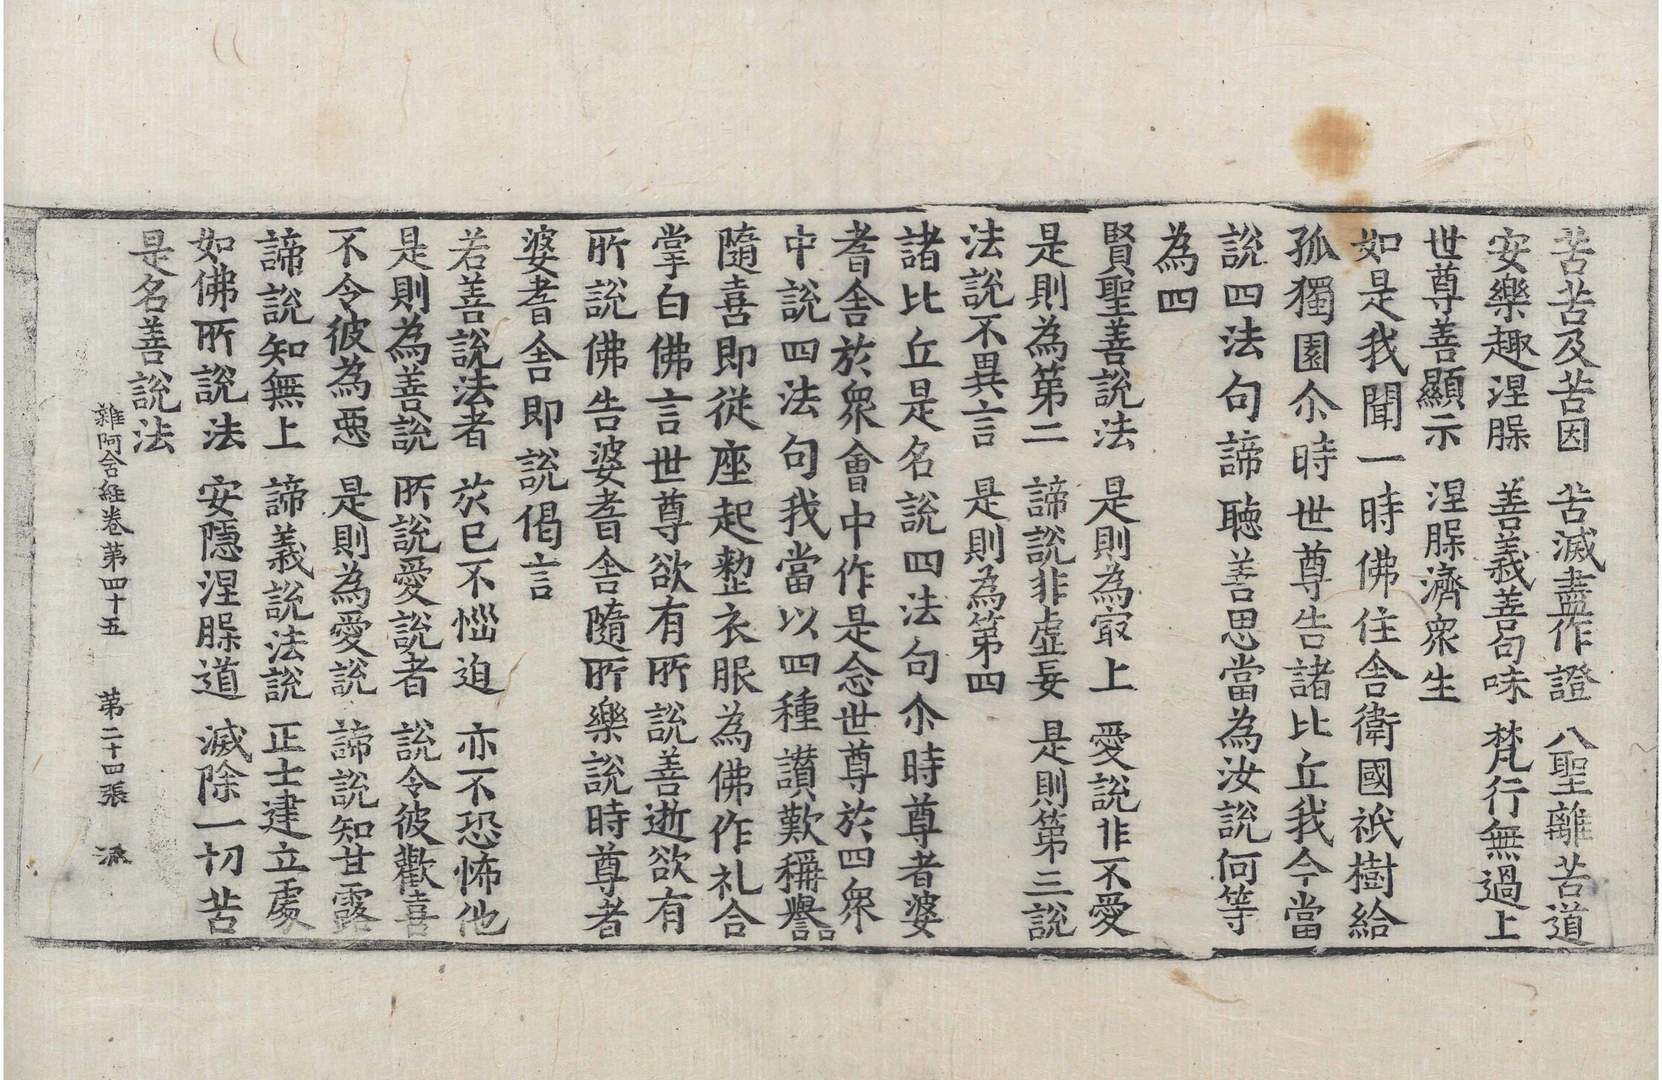 苦苦及苦因　苦滅盡作證　八聖離苦道
安樂趣涅槃　善義善句味　梵行無過上
世尊善顯示　涅槃濟衆生
如是我聞一時佛住舍衛國祇樹給
孤獨園尒時世尊告諸比丘我今當
說四法句諦聽善思當為汝說何等
為四
賢聖善說法　是則為㝡上　愛說非不愛
是則為第二　諦說非虛妄　是則第三說
法說不異言　是則為第四
諸比丘是名說四法句尒時尊者婆
耆舍於衆會中作是念世尊於四衆
中說四法句我當以四種讃歎稱譽
隨喜即從座起整衣服為佛作礼合
掌白佛言世尊欲有所說善逝欲有
所說佛告婆耆舍隨所樂說時尊者
婆耆舍即說偈言
若善說法者　於已不惱迫　亦不恐怖他
是則為善說　所說愛說者　說令彼歡喜
不令彼為惡　是則為愛說　諦說知甘露
諦說知無上　諦義說法說　正士建立處
如佛所說法　安隱涅槃道　滅除一切苦
是名善說法
雜阿含經卷第四十五　第二十四張　流